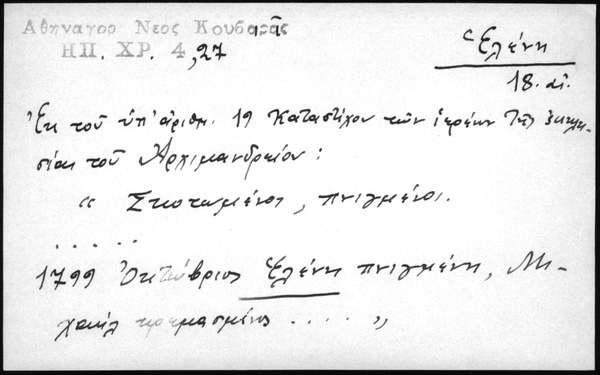 Αθηναγορ Νεος Κουβαρᾶς
ΗΠ. ΧΡ. 4, 27
Ἑλένη
18. αἰ.
Ἐκ τοῦ ὑπ' ἀριθμ. 19 Καταστίχου τῶν ἱερέων τῆς ἐκκλη-
σίας τοῦ Ἀρχιμανδρείου:
" Σκοτωμένοι, πνιγμένοι.
. . . . .
1799 Ὀκτώβριος Ἑλένη πνιγμένη, Μι-
χαὴλ κρεμασμένος . . . . "